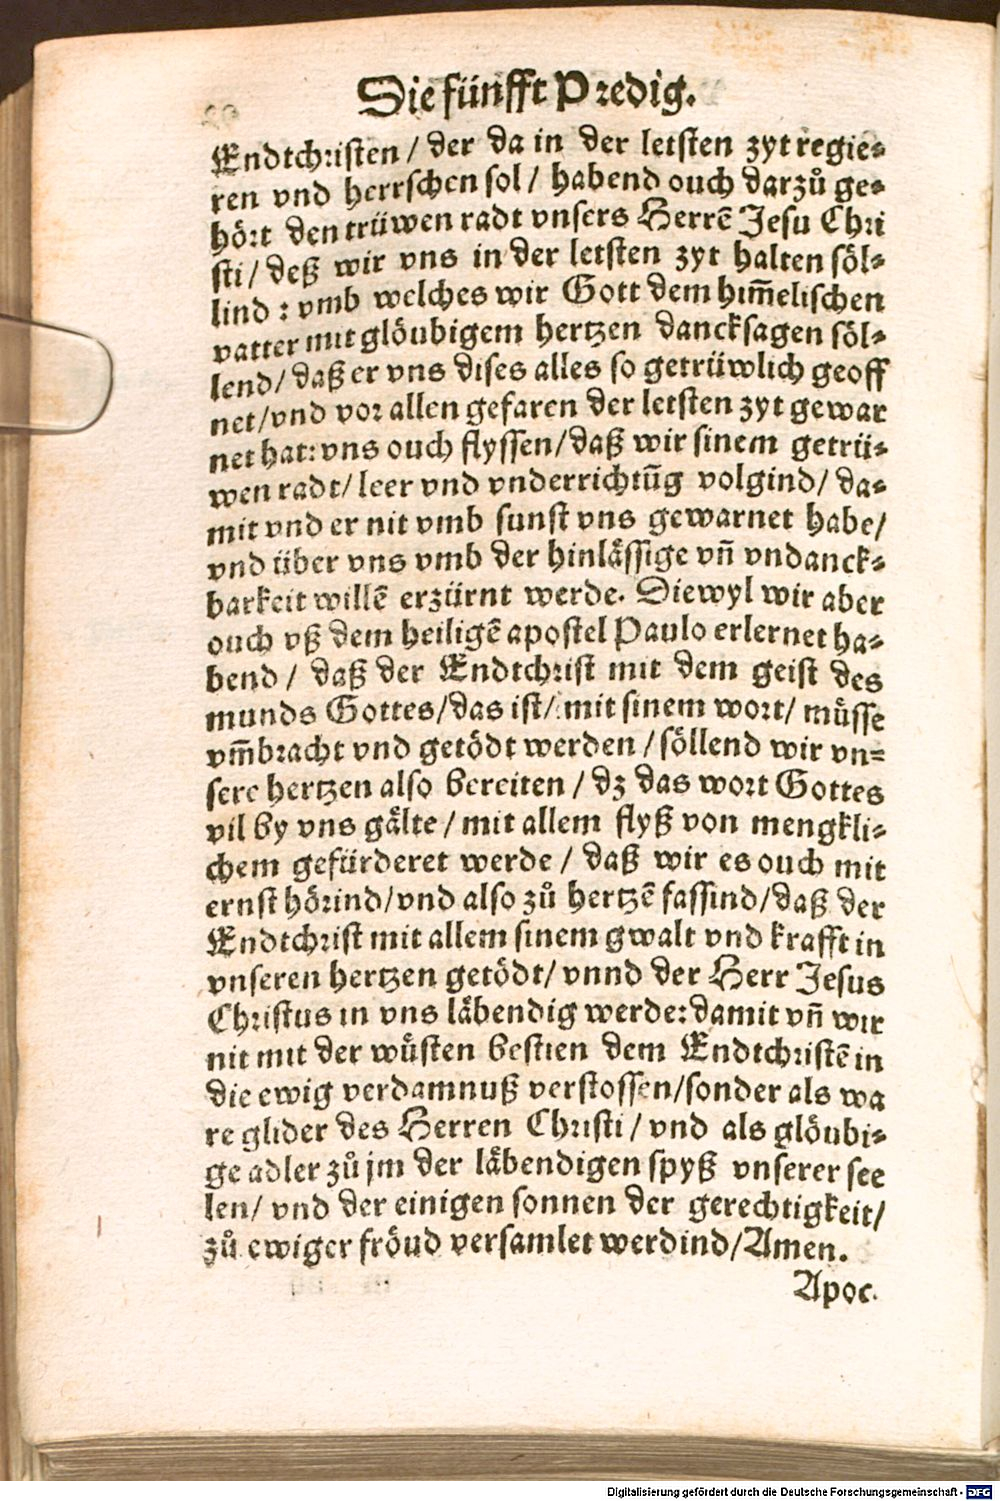 Die fünfft Predig.
Endtchristen / der da in der letsten zyt regie-
ren vnd herrschen sol / habend ouch darzů ge-
hört den trüwen radt vnsers Herrē Jesu Chri
sti / deß wir vns in der letsten zyt halten söl-
lind : vmb welches wir Gott dem him̄elischen
vatter mit glöubigem hertzen dancksagen söl-
lend / daß er vns dises alles so getrüwlich geoff
net / vnd vor allen gefaren der letsten zyt gewar
net hat: vns ouch flyssen / daß wir sinem getrü-
wen radt / leer vnd vnderrichtūg volgind / da-
mit vnd er nit vmb sunst vns gewarnet habe /
vnd über vns vmb der hinlässige vn̄ vndanck-
barkeit willē erzürnt werde. Diewyl wir aber
ouch vß dem heiligē apostel Paulo erlernet ha-
bend / daß der Endtchrist mit dem geist des
munds Gottes / das ist / mit sinem wort / müsse
vm̄bracht vnd getödt werden / söllend wir vn-
sere hertzen also bereiten / dz das wort Gottes
vil by vns gälte / mit allem flyß von mengkli-
chem gefürderet werde / daß wir es ouch mit
ernst hörind / vnd also zů hertzē fassind / daß der
Endtchrist mit allem sinem gwalt vnd krafft in
vnseren hertzen getödt / vnnd der Herr Jesus
Christus in vns läbendig werde: damit vn̄ wir
nit mit der wüsten bestien dem Endtchristē in
die ewig verdamnuß verstossen / sonder als wa
re glider des Herren Christi / vnd als glöubi-
ge adler zů jm der läbendigen spyß vnserer see
len / vnd der einigen sonnen der gerechtigkeit /
zů ewiger fröud versamlet werdind / Amen.
Apoc.
Digitalisierung gefördert durch die Deutsche Forschungsgemeinschaft - DFG